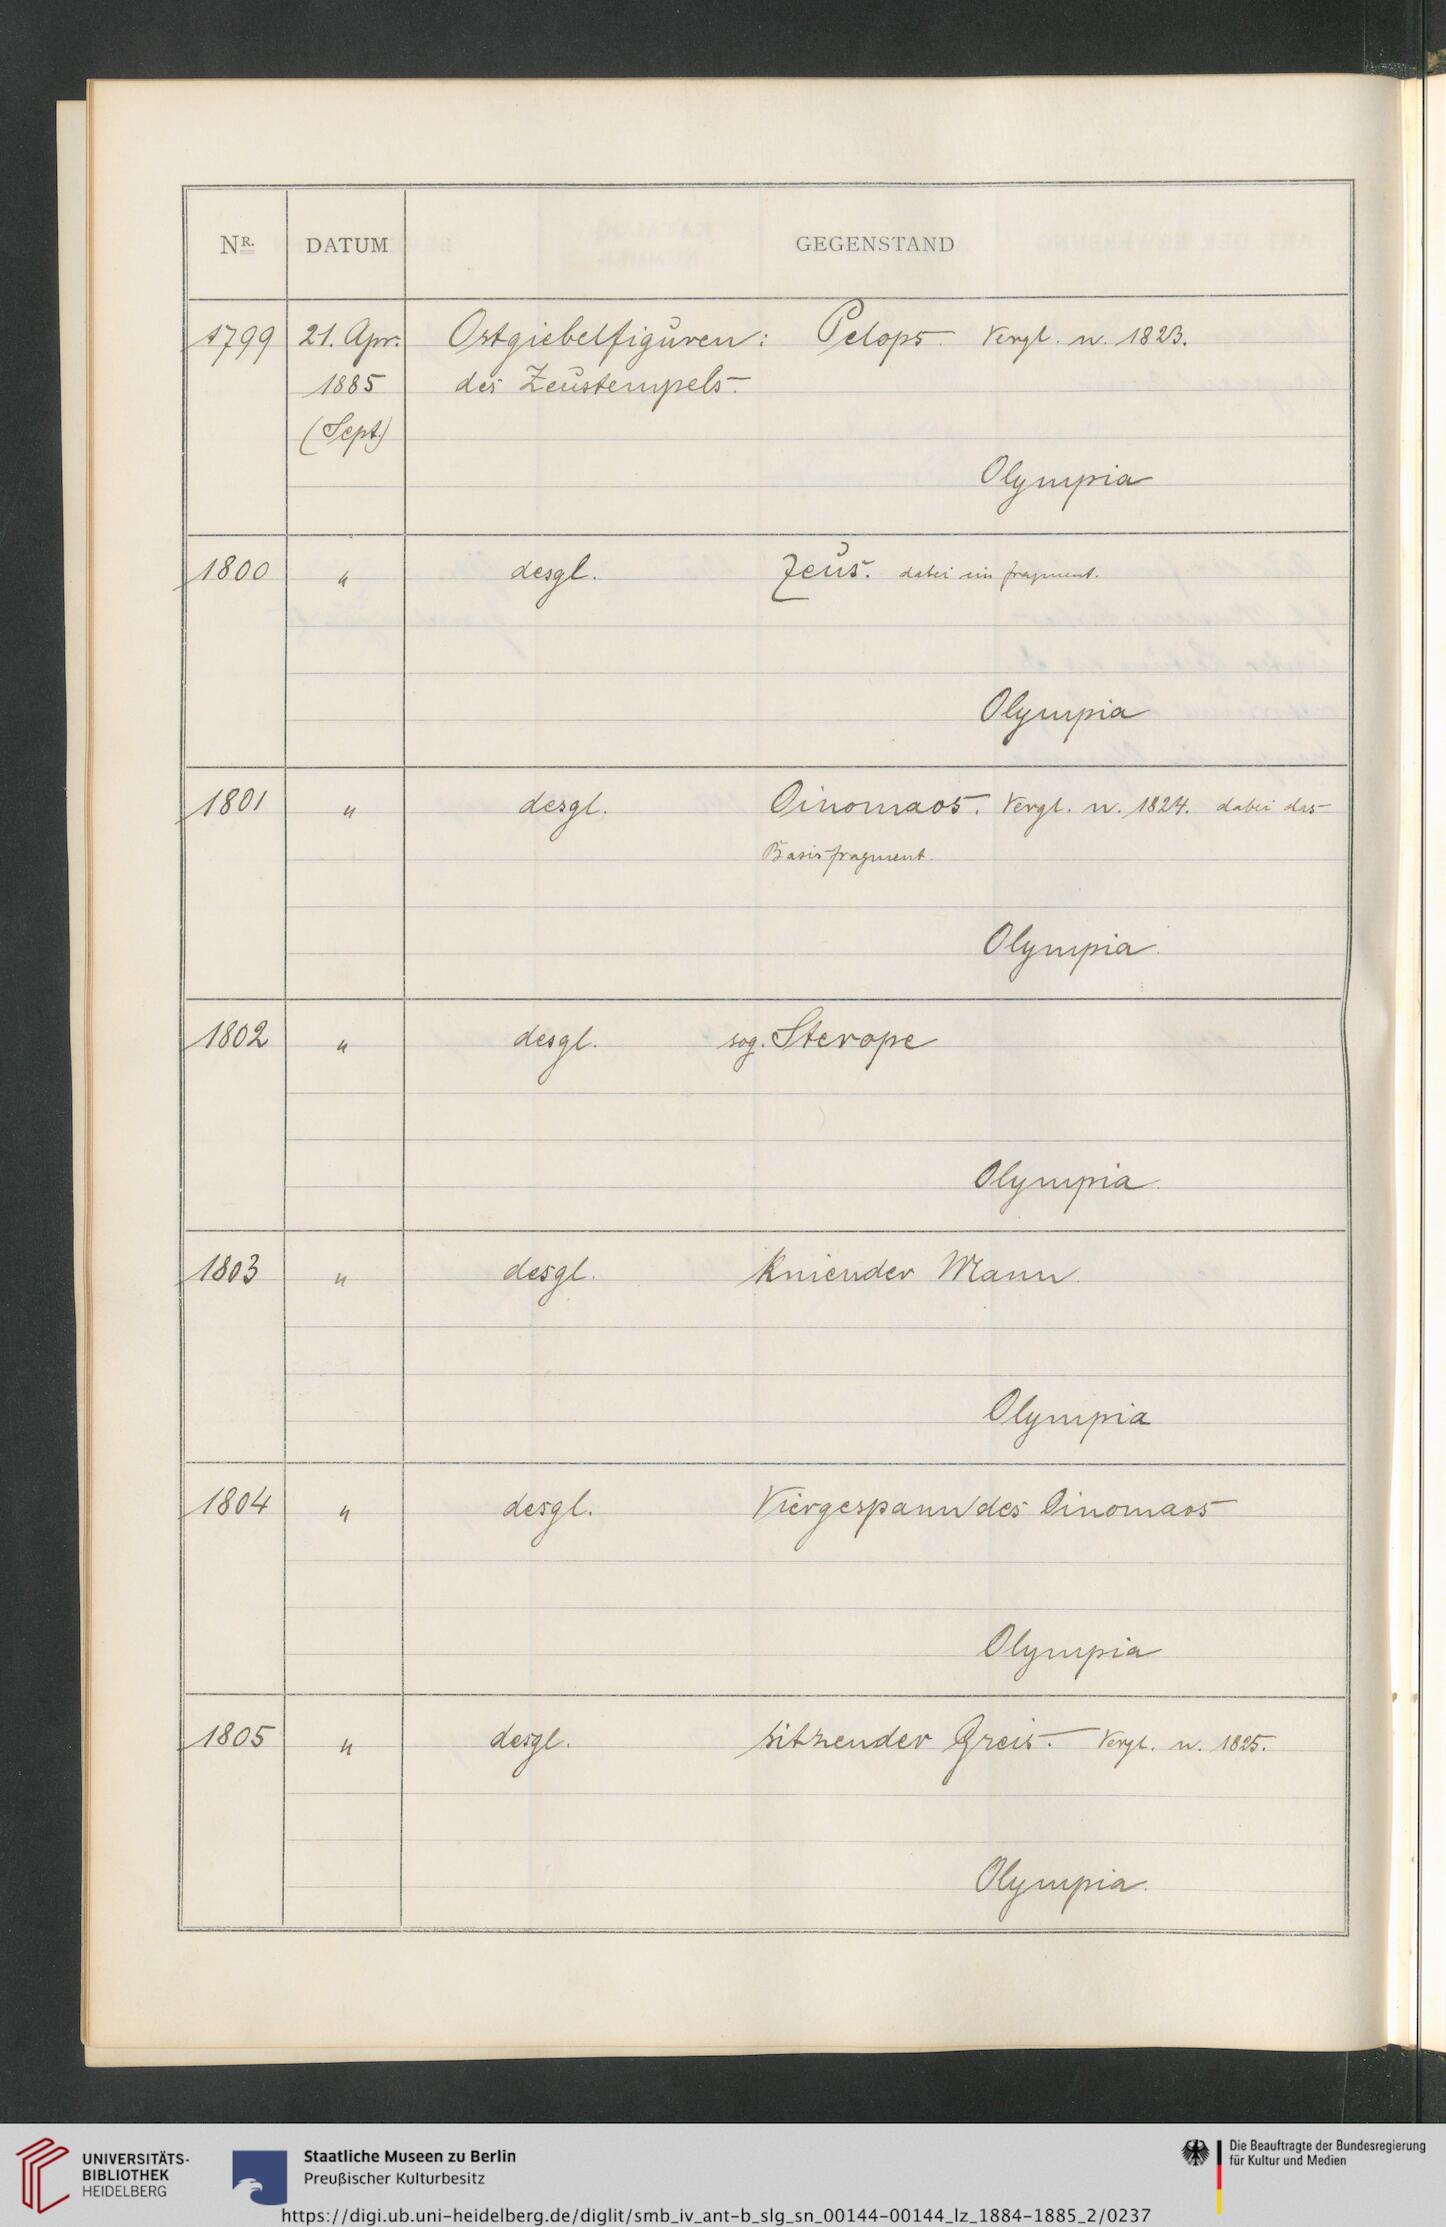 NR. DATUM GEGENSTAND
1799 21. Apr. Ostgiebelfiguren: Pelops. Vergl. n. 1823.
1885 des Zeustempels.
(Sept.)
Olympia
1800 " desgl. Zeus. dabei ein fragment.
Olympia
1801 " desgl. Oinomaos. Vergl. n. 1824. dabei das
Basisfragment.
Olympia.
1802 " desgl. sog. Sterope
Olympia.
1803 " desgl. Kniender Mann.
Olympia
1804 " desgl. Viergespann des Oinomaos
Olympia
1805 " desgl. sitzender Greis. Vergl. n. 1825.
Olympia.
UNIVERSITÄTS-
BIBLIOTHEK
HEIDELBERG
Staatliche Museen zu Berlin
Preußischer Kulturbesitz
Die Beauftragte der Bundesregierung
für Kultur und Medien
https://digi.ub.uni-heidelberg.de/diglit/smb_iv_ant-b_slg_sn_00144-00144_lz_1884-1885_2/0237